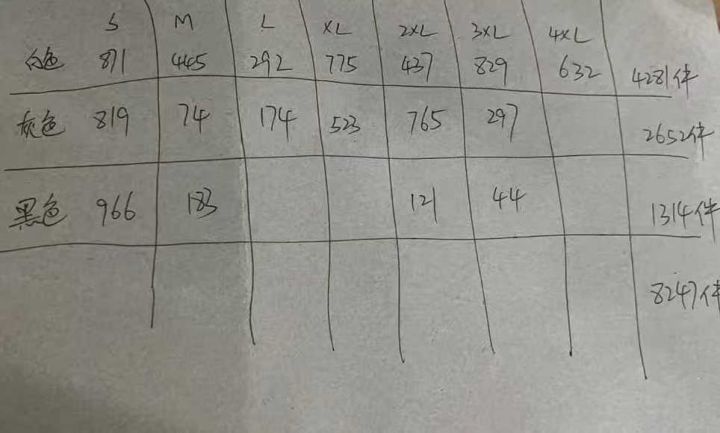 S M L XL 2XL 3XL 4XL
白色 871 445 292 775 437 829 632 4281件
灰色 819 74 174 523 765 297 2652件
黑色 966 183 121 44 1314件
8247件